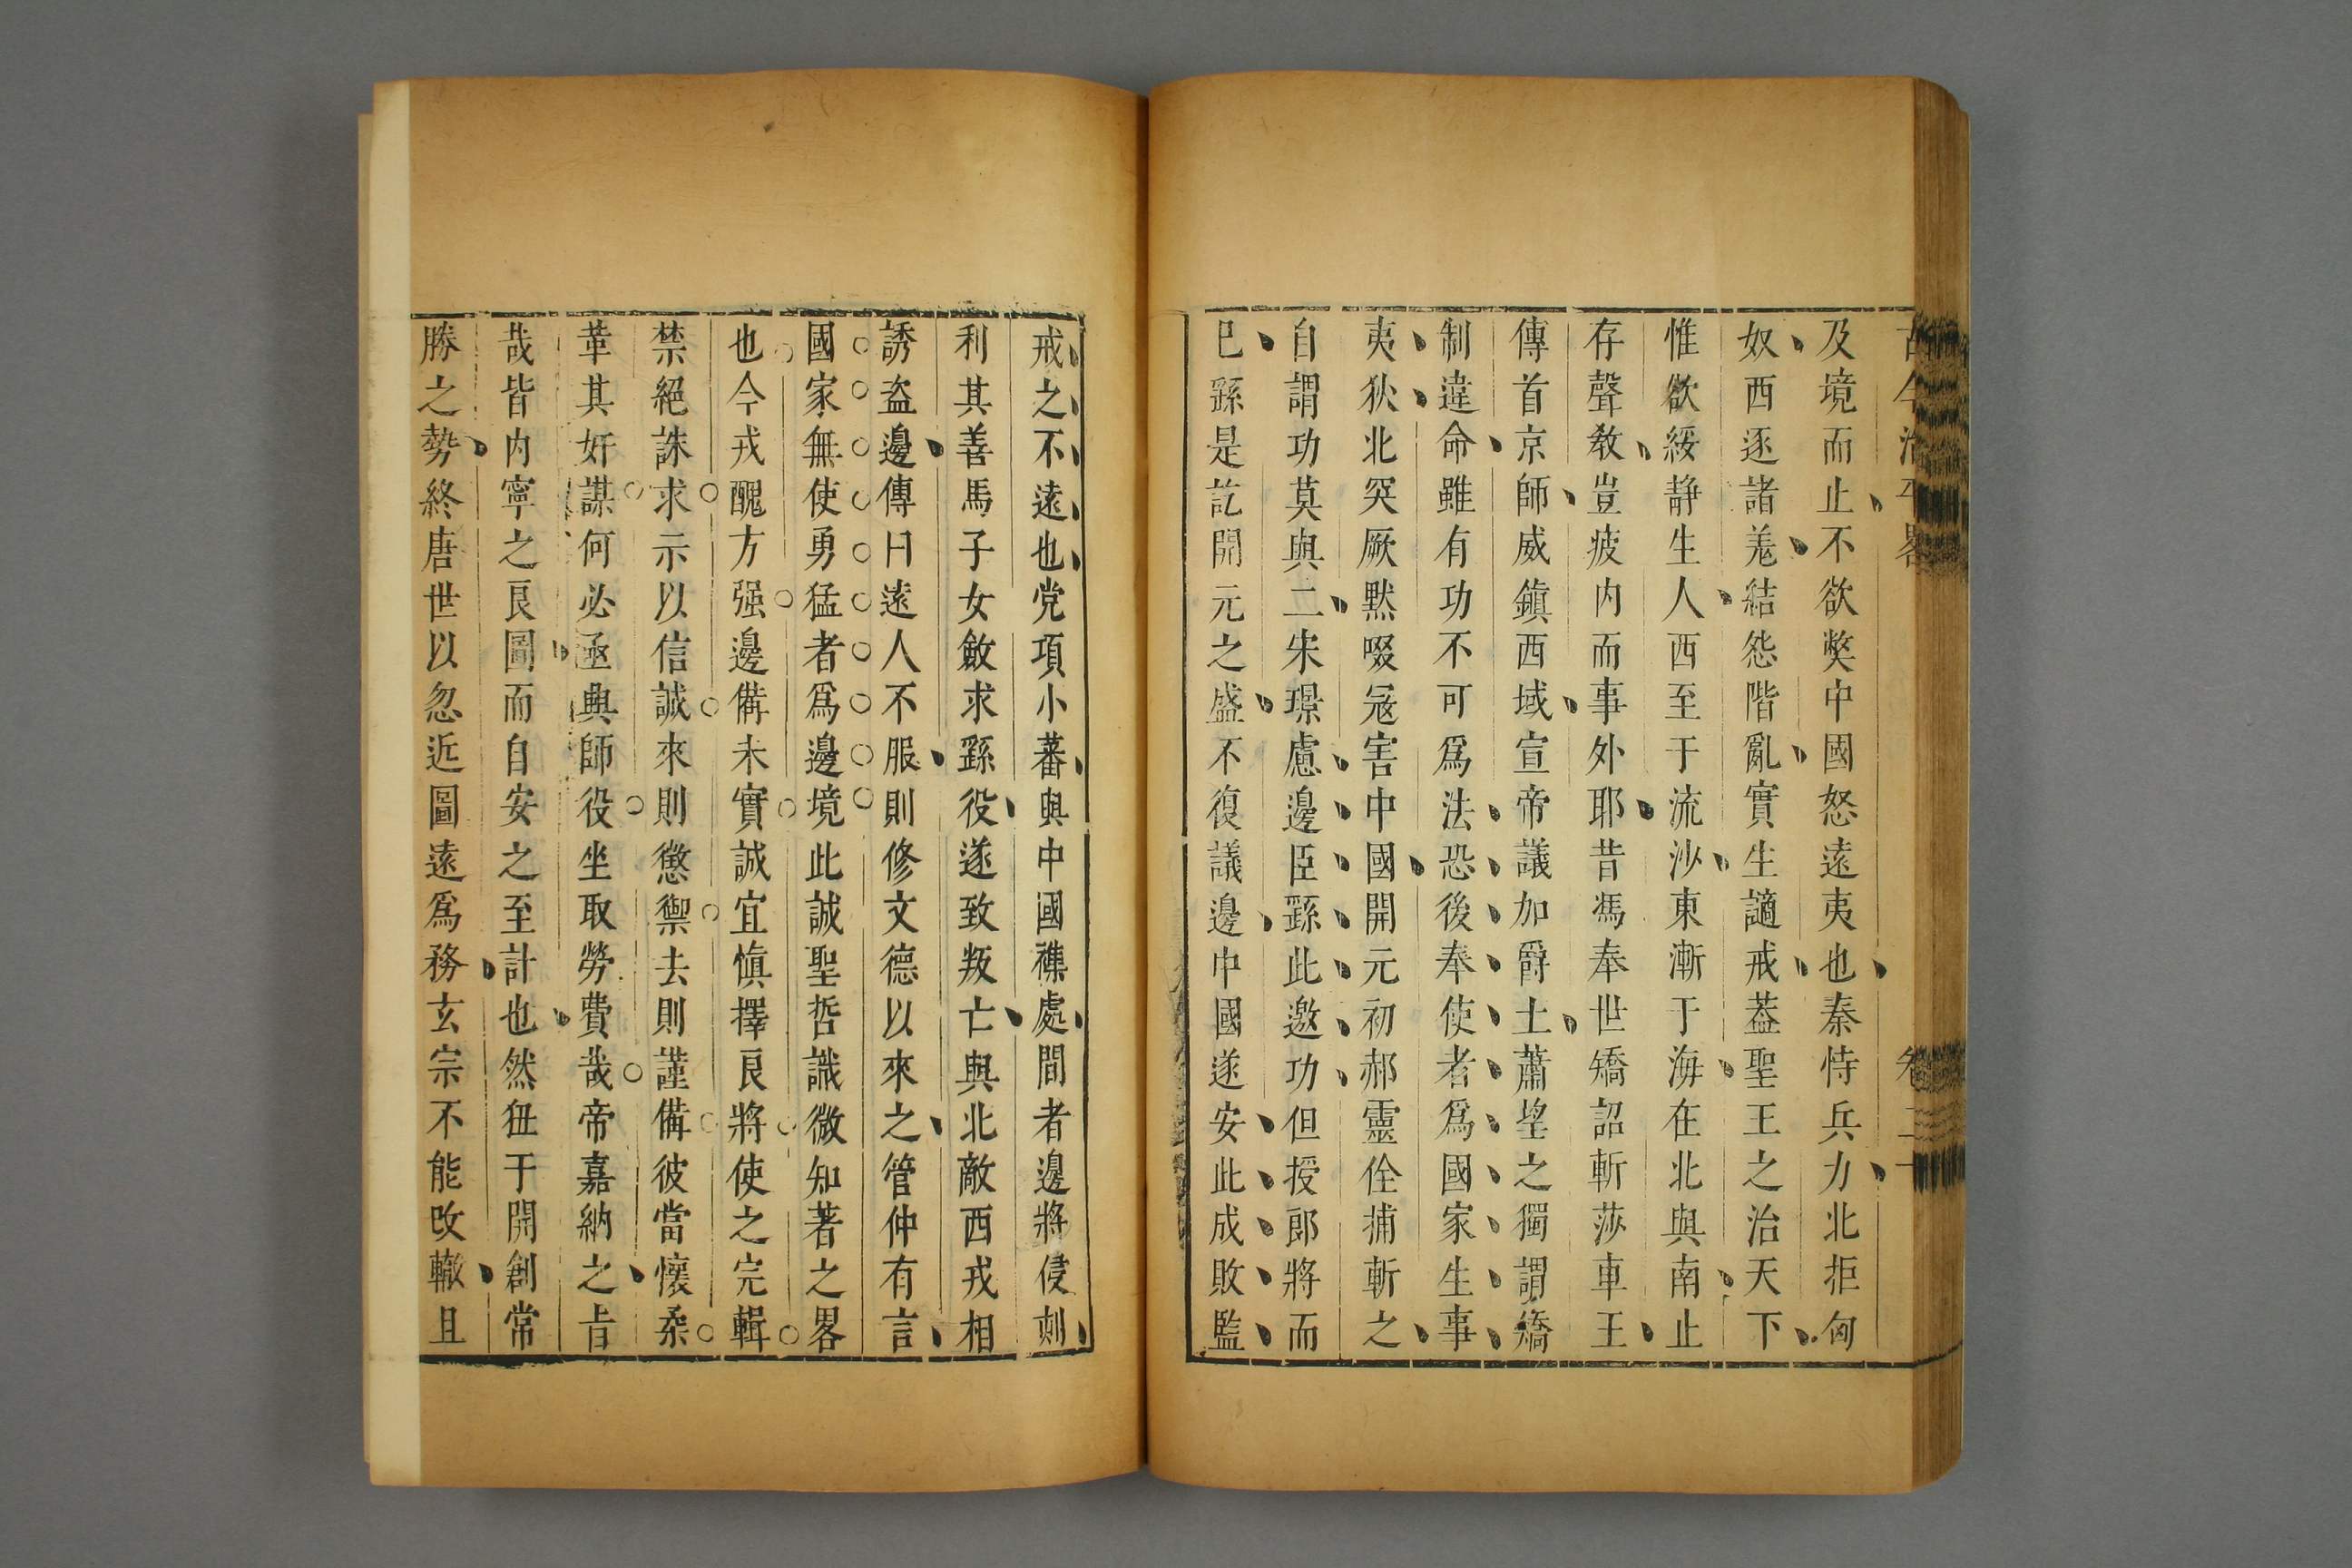 古今治平畧 卷二十
及境而止不欲獘中國怒遠夷也秦恃兵力北拒匈
奴西逐諸羗結怨階亂實生謫戒葢聖王之治天下
惟欲綏静生人西至于流沙東漸于海在北與南止
存聲教豈疲内而事外耶昔馮奉世矯詔斬莎車王
傳首京師威鎮西域宣帝議加爵土蕭望之獨謂矯
制違命雖有功不可爲法恐後奉使者爲國家生事
夷狄北突厥黙啜冦害中國開元初郝靈佺捕斬之
自謂功莫與二宋璟慮邊臣繇此邀功但授郎將而
已繇是訖開元之盛不復議邊中國遂安此成敗監
戒之不遠也党項小蕃與中國襍處間者邊將侵刻
利其善馬子女斂求繇役遂致叛亡與北敵西戎相
誘盗邊傳曰遠人不服則修文德以來之管仲有言
國家無使勇猛者爲邊境此誠聖哲識微知著之畧
也今戎醜方强邊備未實誠宜愼擇良將使之完輯
禁絕誅求示以信誠來則懲禦去則謹備彼當懷柔
革其奸謀何必亟興師役坐取勞費哉帝嘉納之㫖
哉皆内寧之良圖而自安之至計也然狃于開創常
勝之勢終唐世以忽近圖遠爲務玄宗不能改轍且